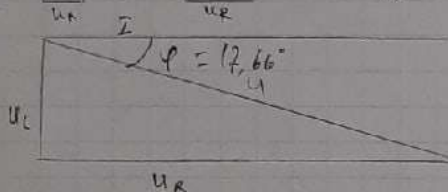 u_R u_R
I
φ = 17,66°
u
u_L
u_R